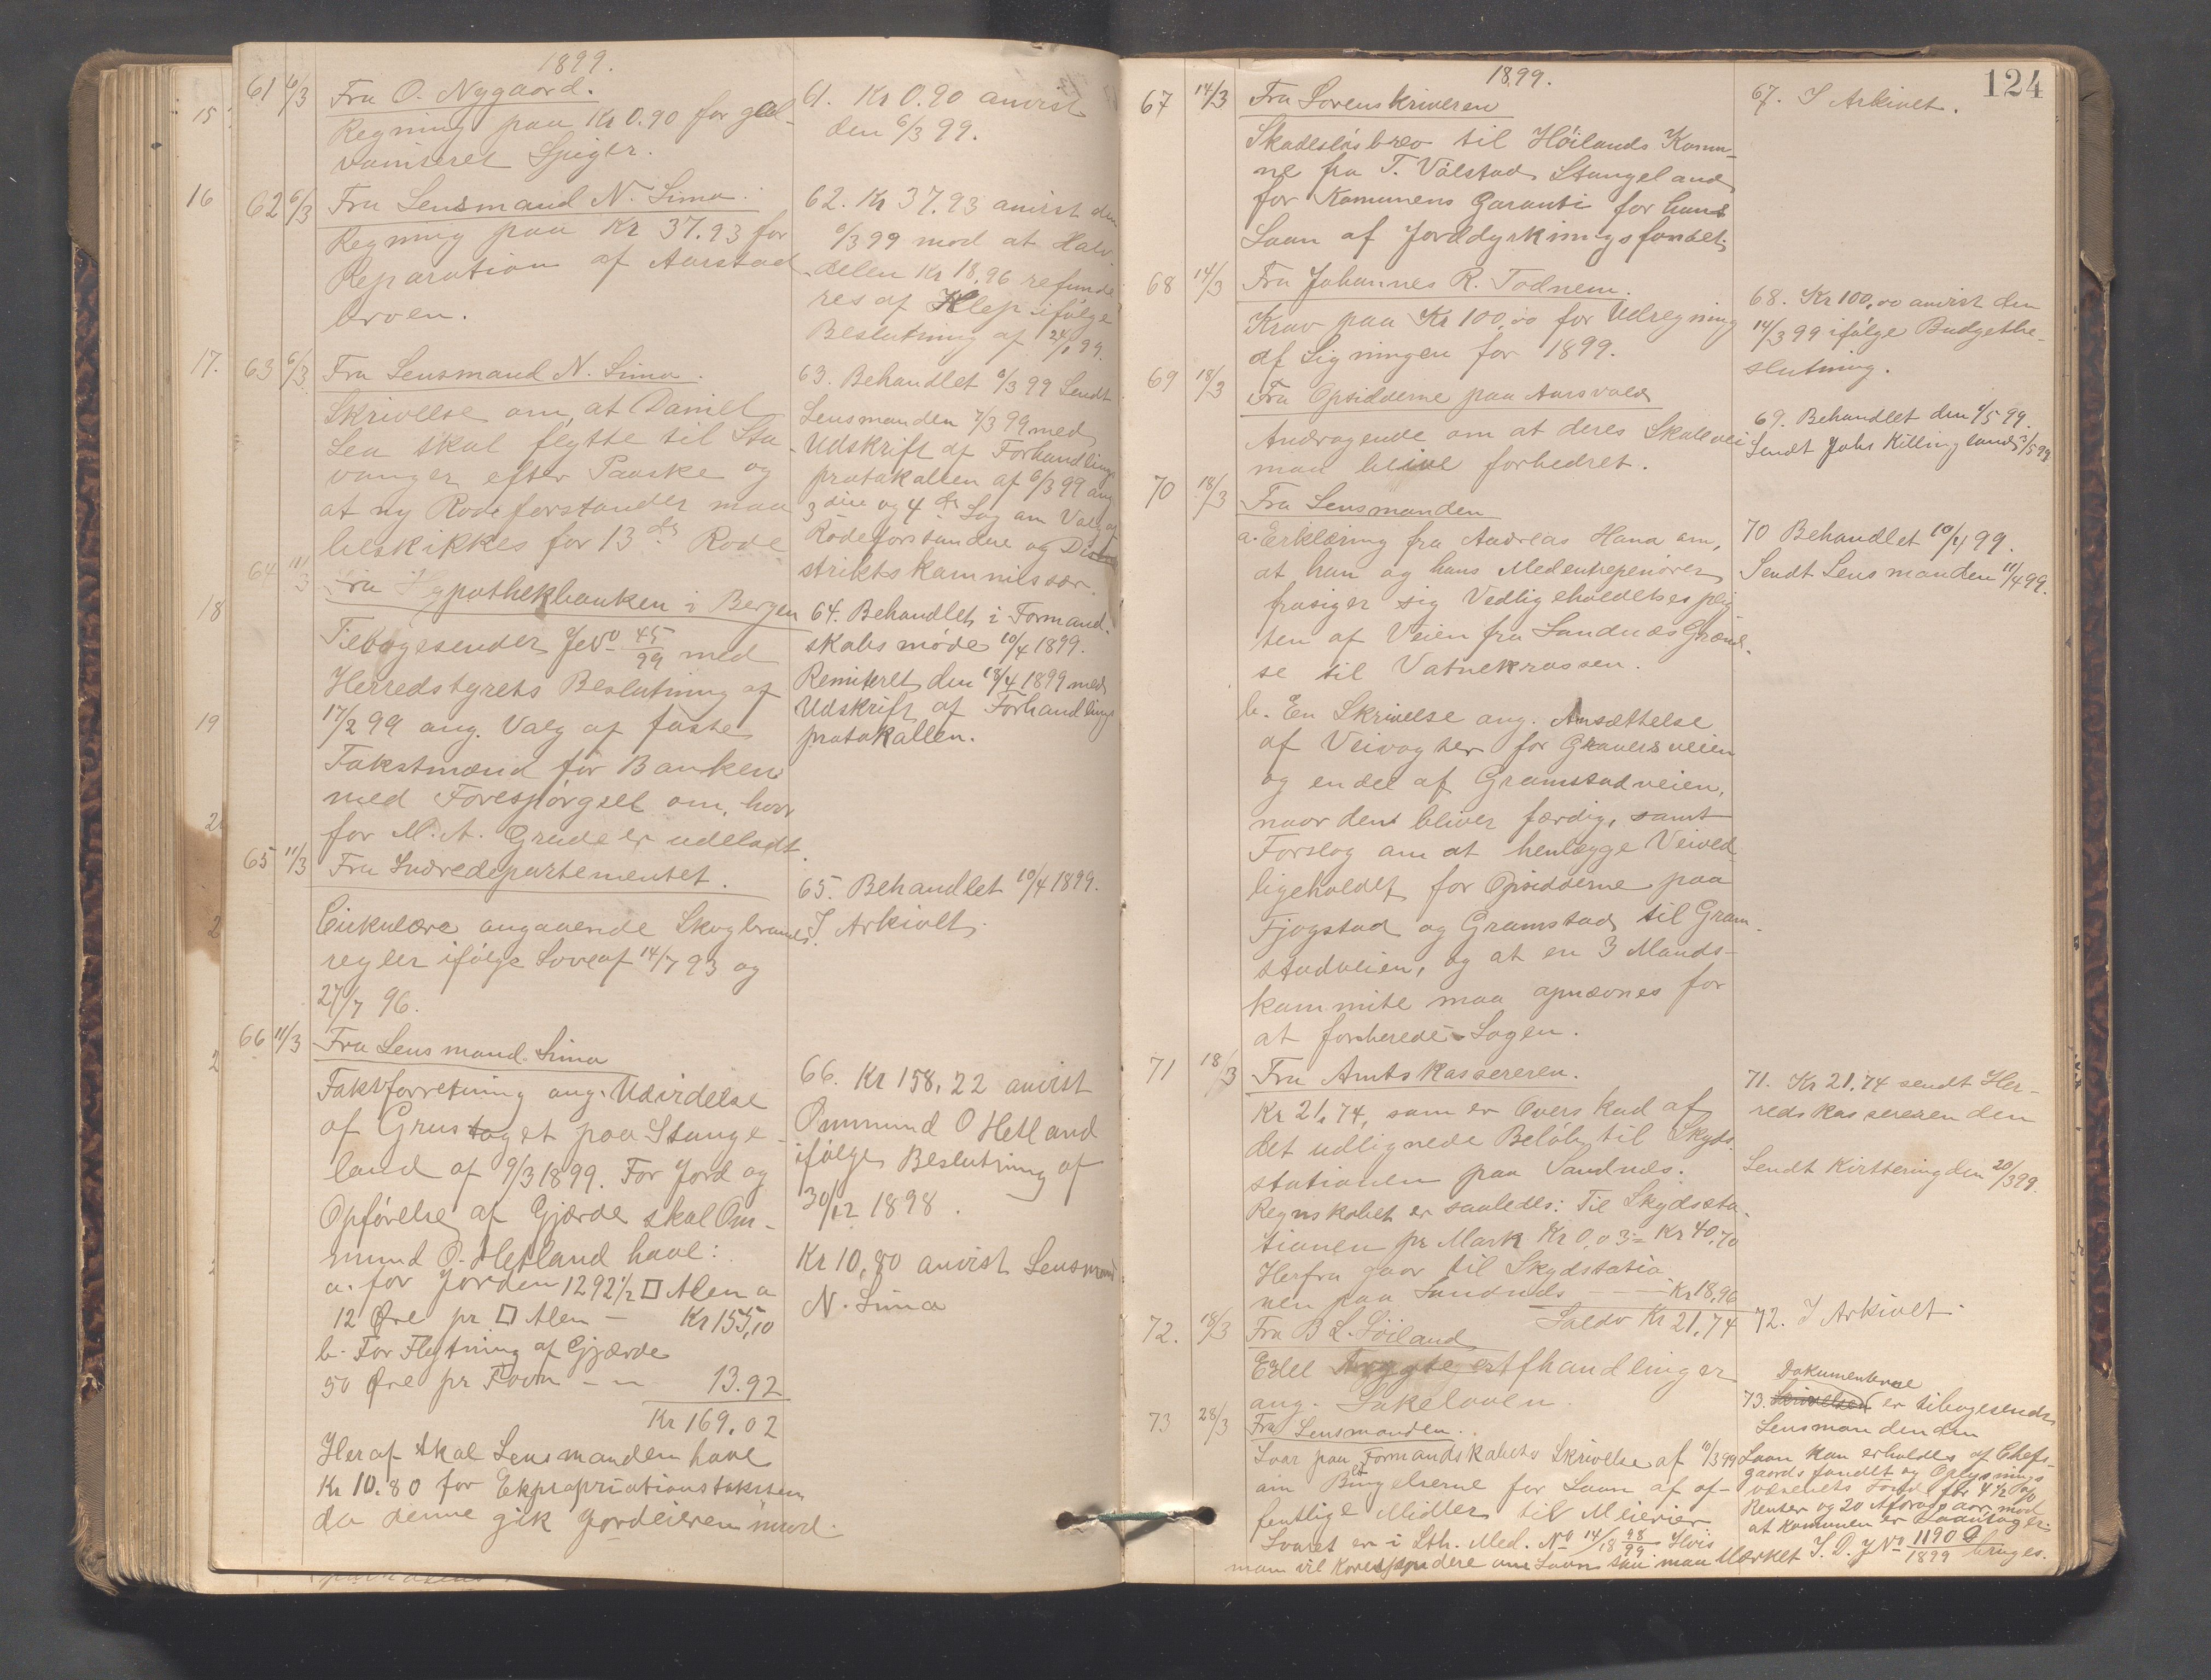 1899.
61 6/3 Fra O. Nygaard.
Regning paa Kr 0.90 for gal-
vaniseret Spiger.
61. Kr 0.90 anvist
den 6/3 99.
62 6/3 Fra Lensmand N. Sima.
Regning paa Kr 37.93 for
Reparation af Aarstad
broen.
62. Kr 37.93 anvist den
6/3 99 mod at Halv-
delen Kr 18,96 refunde
res af Klep ifølge
Beslutning af 24/1 99.
63 6/3 Fra Lensmand N. Sima.
Skrivelse om, at Daniel
Lea skal flytte til Sta
vanger efter Paaske og
at ny Rodeforstander maa
beskikkes for 13 de Rode
63. Behandlet 6/3 99 Sendt
Lensmanden 7/3 99 med
Udskrift af Forhandlings
protokollen af 6/3 99 ang
3 die og 4 de Sag om Valg af
Rodeforstandere og Di
striktskommissær.
64 11/3 Fra Hypothekbanken i Bergen
Tilbagesender JNo 45/99 med
Herredstyrets Beslutning af
17/2 99 ang. Valg af faste
Takstmænd for Banken
med Forespørgsel om, hvor
for M. A. Grude er udeladt.
64. Behandlet i Formand-
skabsmøde 10/4 1899.
Remiteret den 18/4 1899 med
Udskrift af Forhandlings
protokollen.
65 11/3 Fra Indredepartementet.
Cirkulære angaaende Skogbrands
regler ifølge Love af 14/7 93 og
27/7 96.
65. Behandlet 10/4 1899.
I Arkivet.
66 11/3 Fra Lensmand Sima
Takstforretning ang. Udvirdelse
af Grustaget paa Stange-
land af 9/3 1899. For Jord og
Opførelse af Gjærde skal Om-
mund O. Hetland have:
a. for Jorden 1292 1/2 □ Alen a
12 Øre pr □ Alen - Kr 155,10
b. For Flytning af Gjærde
50 Øre pr Favn - - 13.92
Kr 169.02
Heraf skal Lensmanden have
Kr 10.80 for Expropriationstaksten
da denne gik Jordeieren imod.
66. Kr 158,22 anvist
Ommund O Hetland
ifølge Beslutning af
30/12 1898.
Kr 10,80 anvist Lensmand
N. Sima
15
16
17.
18
19
124
1899.
67 14/3 Fra Sorenskriveren
Skadesløsbrev til Høilands Kommu-
ne fra T. Vølstad Stangeland
for Kommunens Garanti for hans
Laan af Jorddyrkningsfondet.
67. I Arkivet.
68 14/3 Fra Johannes R. Todnem.
Krav paa Kr 100,00 for Udregning
af Ligningen for 1899.
68. Kr 100,00 anvist den
14/3 99 ifølge Budgetbe-
slutning.
69 18/3 Fra Opsidderne paa Aarsvold
Andragende om at deres Skolevei
maa blive forbedret.
69. Behandlet den 1/5 99.
Sendt Johs Killingland 3/5 99
70 18/3 Fra Lensmanden
a. Erklæring fra Andreas Hana om,
at han og hans Medentrepenører
frasiger sig Vedligeholdelsesplig
ten af Veien fra Sandnæs Grænd-
se til Vatnekrossen.
b. En Skrivelse ang. Ansættelse
af Veivogter for Graversveien
og endel af Gramstadveien,
naar den bliver færdig, samt
Forslag om at henlægge Veived-
ligeholdet for Opsidderne paa
Fjogstad og Gramstad til Gram-
stadveien, og at en 3 Mands-
kommite maa opnævnes for
at forberede Sagen.
70 Behandlet 10/4 99.
Sendt Lensmanden 11/4 99.
71 18/3 Fra Amtskassereren.
Kr 21,74, som er Overskud af
det udlignede Beløb til Skyds
stationen paa Sandnæs.
Regnskabet er saaledes: Til Skydssta-
tionen pr Mark Kr 0,03 = Kr 40,70
Herfra gaar til Skydstatio
nen paa Sandnæs - - - Kr 18,96
Saldo Kr 21,74
71. Kr 21,74 sendt Her-
redskassereren den
Sendt Kvittering den 20/3 99.
72. 18/3 Fra B L. Søiland
Edel Trygte Stfhandlinger
ang. Lakeloven.
72. I Arkivet.
73 28/3 Fra Lensmanden.
Svar paa Formandskabets Skrivelse af 10/3 99
om Bingelserne for Laan af of-
fentlige Midler til Meierier
Svaret er i Sth. Med. No 14/18 98/99 Hvis
man vil Korrespondere om Laan saa maa Mærket I. D. JNo 1190 D/1899 bruges.
Dokumenterne
73. Skrivelsen er tilbagesendt
Lensmanden den
Laan kan erholdes af Chefs-
gaardsfondet og Oplysnings
væsenets Fond for 4 1/2 %
Renter og 20 Afdragsaar, mod
at Kommunen er Laantager.